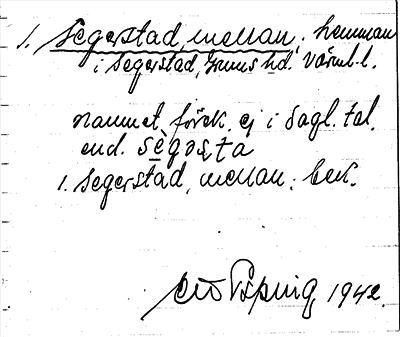 1. Segerstad, mellan; hemman
i Segerstad, Grums hd. Värml. l.
namnet förek. ej i dagl. tal.
end. sègəsta
1. Segerstad, mellan: bek.
1942.